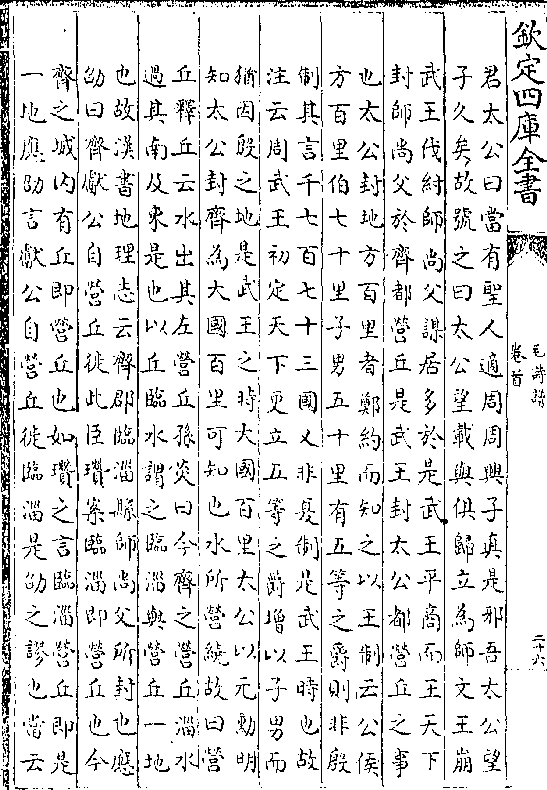 欽定四庫全書
毛詩譜
卷首
二十六
君太公曰當有聖人適周周興子真是邪吾太公望
子久矣故號之曰太公望載與俱歸立為師文王崩
武王伐紂師尚父謀居多於是武王平商而王天下
封師尚父於齊都營丘是武王封太公都營丘之事
也太公封地方百里者鄭約而知之以王制云公侯
方百里伯七十里子男五十里有五等之爵則非殷
制其言千七百七十三國又非夏制是武王時也故
注云周武王初定天下更立五等之爵增以子男而
猶因殷之地是武王之時大國百里太公以元勳明
知太公封齊為大國百里可知也水所營繞故曰營
丘釋丘云水出其左營丘孫炎曰今齊之營丘淄水
過其南及東是也以丘臨水謂之臨淄與營丘一地
也故漢書地理志云齊郡臨淄縣師尚父所封也應
劭曰齊獻公自營丘徙此臣瓚案臨淄即營丘也今
齊之城內有丘即營丘也如瓚之言臨淄營丘即是
一地應劭言獻公自營丘徙臨淄是劭之謬也當云